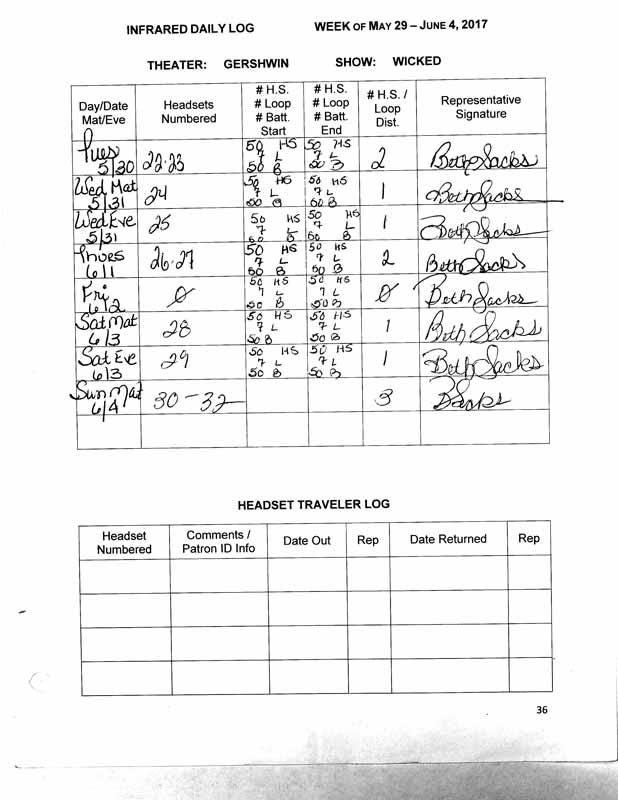 INFRARED DAILY LOG WEEK OF MAY 29 – JUNE 4, 2017
THEATER: GERSHWIN SHOW: WICKED
Day/Date Mat/Eve Headsets Numbered # H.S. # Loop # Batt. Start # H.S. # Loop # Batt. End # H.S. / Loop Dist. Representative Signature
Tues 5/30 22-23 50 HS 7 L 50 B 50 HS 7 L 50 B 2 Beth Sacks
Wed Mat 5/31 24 50 HS 7 L 50 B 50 HS 7 L 50 B 1 Beth Sacks
Wed Eve 5/31 25 50 HS 7 L 50 B 50 HS 7 L 50 B 1 Beth Sacks
Thurs 6/1 26-27 50 HS 7 L 50 B 50 HS 7 L 50 B 2 Beth Sacks
Fri 6/2 0 50 HS 7 L 50 B 50 HS 7 L 50 B 0 Beth Sacks
Sat Mat 6/3 28 50 HS 7 L 50 B 50 HS 7 L 50 B 1 Beth Sacks
Sat Eve 6/3 29 50 HS 7 L 50 B 50 HS 7 L 50 B 1 Beth Sacks
Sun Mat 6/4 30-32 3 B Sacks
HEADSET TRAVELER LOG
Headset Numbered Comments / Patron ID Info Date Out Rep Date Returned Rep
36